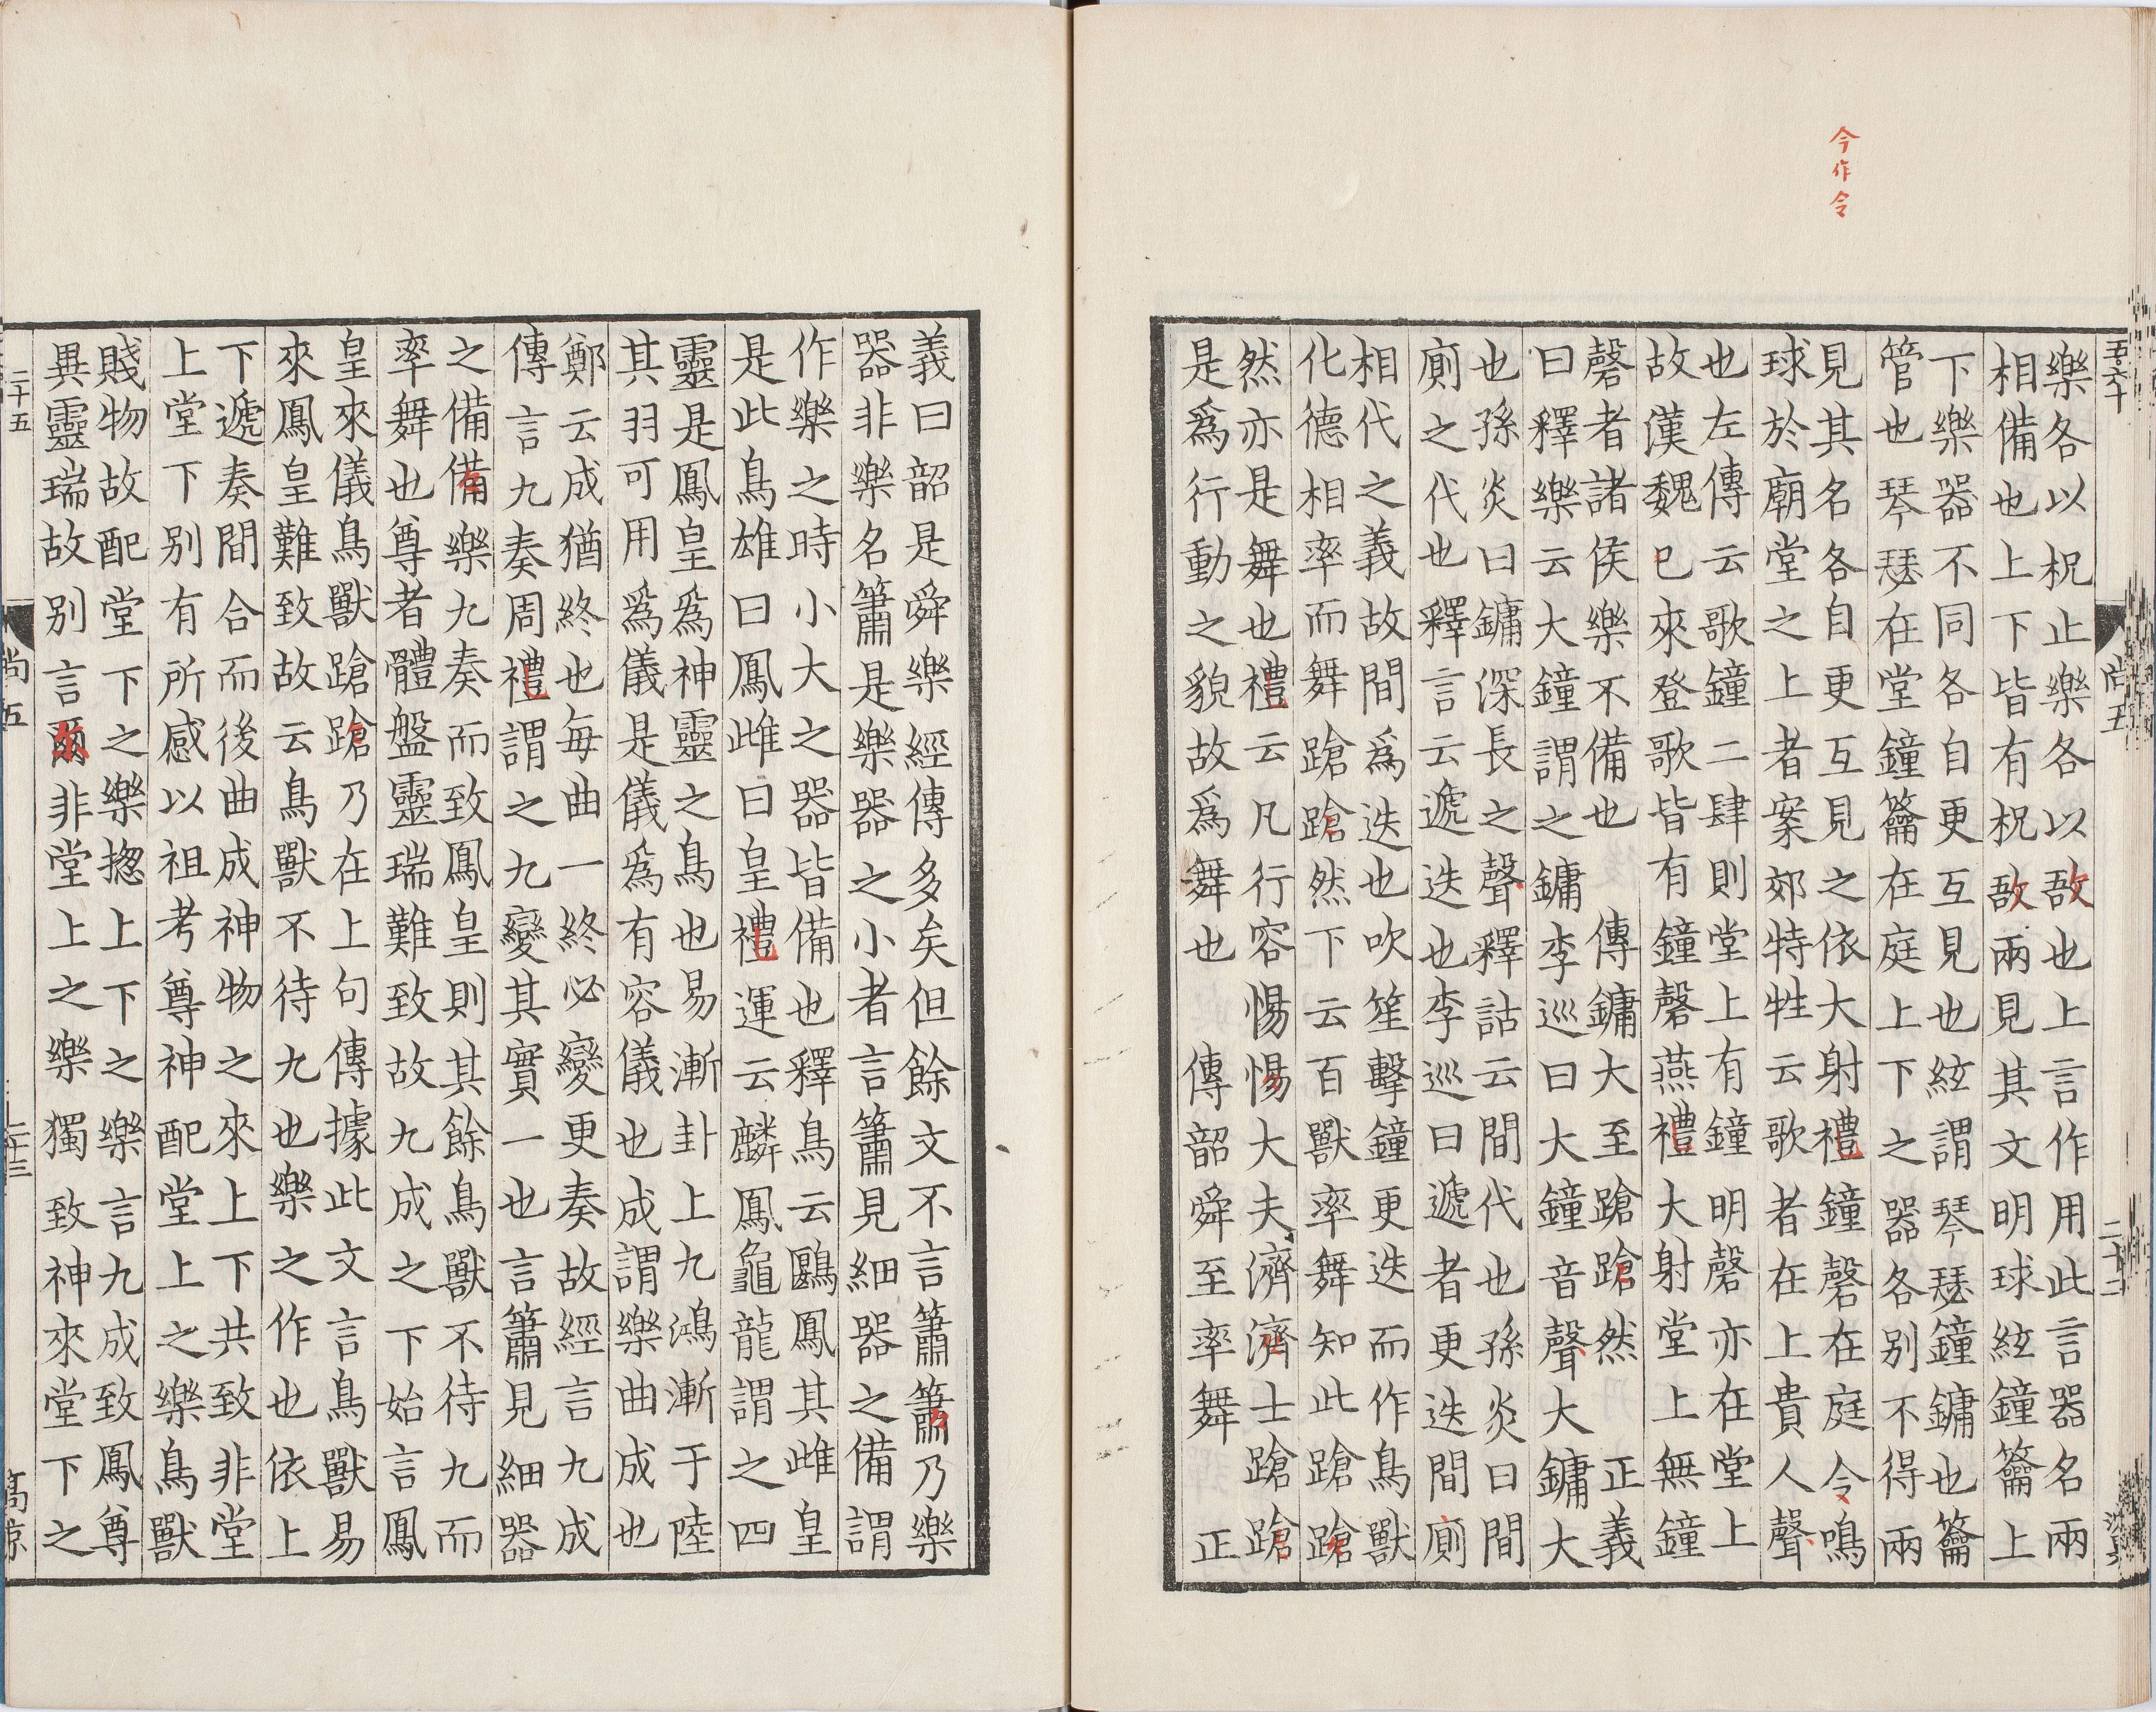 今作令
五六十
尚五
二十二
樂各以柷止樂各以敔也上言作用此言器名兩
相備也上下皆有柷敔兩見其文明球絃鐘籥上
下樂器不同各自更互見也絃謂琴瑟鐘鏞也籥
管也琴瑟在堂鐘籥在庭上下之器各别不得兩
見其名各自更互見之依大射禮鐘磬在庭今鳴
球於廟堂之上者案郊特牲云歌者在上貴人聲
也左傳云歌鐘二肆則堂上有鐘明磬亦在堂上
故漢魏已來登歌皆有鐘磬燕禮大射堂上無鐘
磬者諸侯樂不備也　傳鏞大至蹌蹌然　正義
曰釋樂云大鐘謂之鏞李巡曰大鐘音聲大鏞大
也孫炎曰鏞深長之聲釋詁云間代也孫炎曰間
廁之代也釋言云遞迭也李巡曰遞者更迭間廁
相代之義故間爲迭也吹笙擊鐘更迭而作鳥獸
化德相率而舞蹌蹌然下云百獸率舞知此蹌蹌
然亦是舞也禮云凡行容惕惕大夫濟濟士蹌蹌
是爲行動之貌故爲舞也　傳韶舜至率舞　正
義曰韶是舜樂經傳多矣但餘文不言簫簫乃樂
器非樂名簫是樂器之小者言簫見細器之備謂
作樂之時小大之器皆備也釋鳥云鶠鳳其雌皇
是此鳥雄曰鳳雌曰皇禮運云麟鳳龜龍謂之四
靈是鳳皇爲神靈之鳥也易漸卦上九鴻漸于陸
其羽可用爲儀是儀爲有容儀也成謂樂曲成也
鄭云成猶終也每曲一終必變更奏故經言九成
傳言九奏周禮謂之九變其實一也言簫見細器
之備備樂九奏而致鳳皇則其餘鳥獸不待九而
率舞也尊者體盤靈瑞難致故九成之下始言鳳
皇來儀鳥獸蹌蹌乃在上句傳據此文言鳥獸易
來鳳皇難致故云鳥獸不待九也樂之作也依上
下遞奏間合而後曲成神物之來上下共致非堂
上堂下别有所感以祖考尊神配堂上之樂鳥獸
賤物故配堂下之樂揔上下之樂言九成致鳳尊
異靈瑞故别言爾非堂上之樂獨致神來堂下之
二十五
尚五
二十三